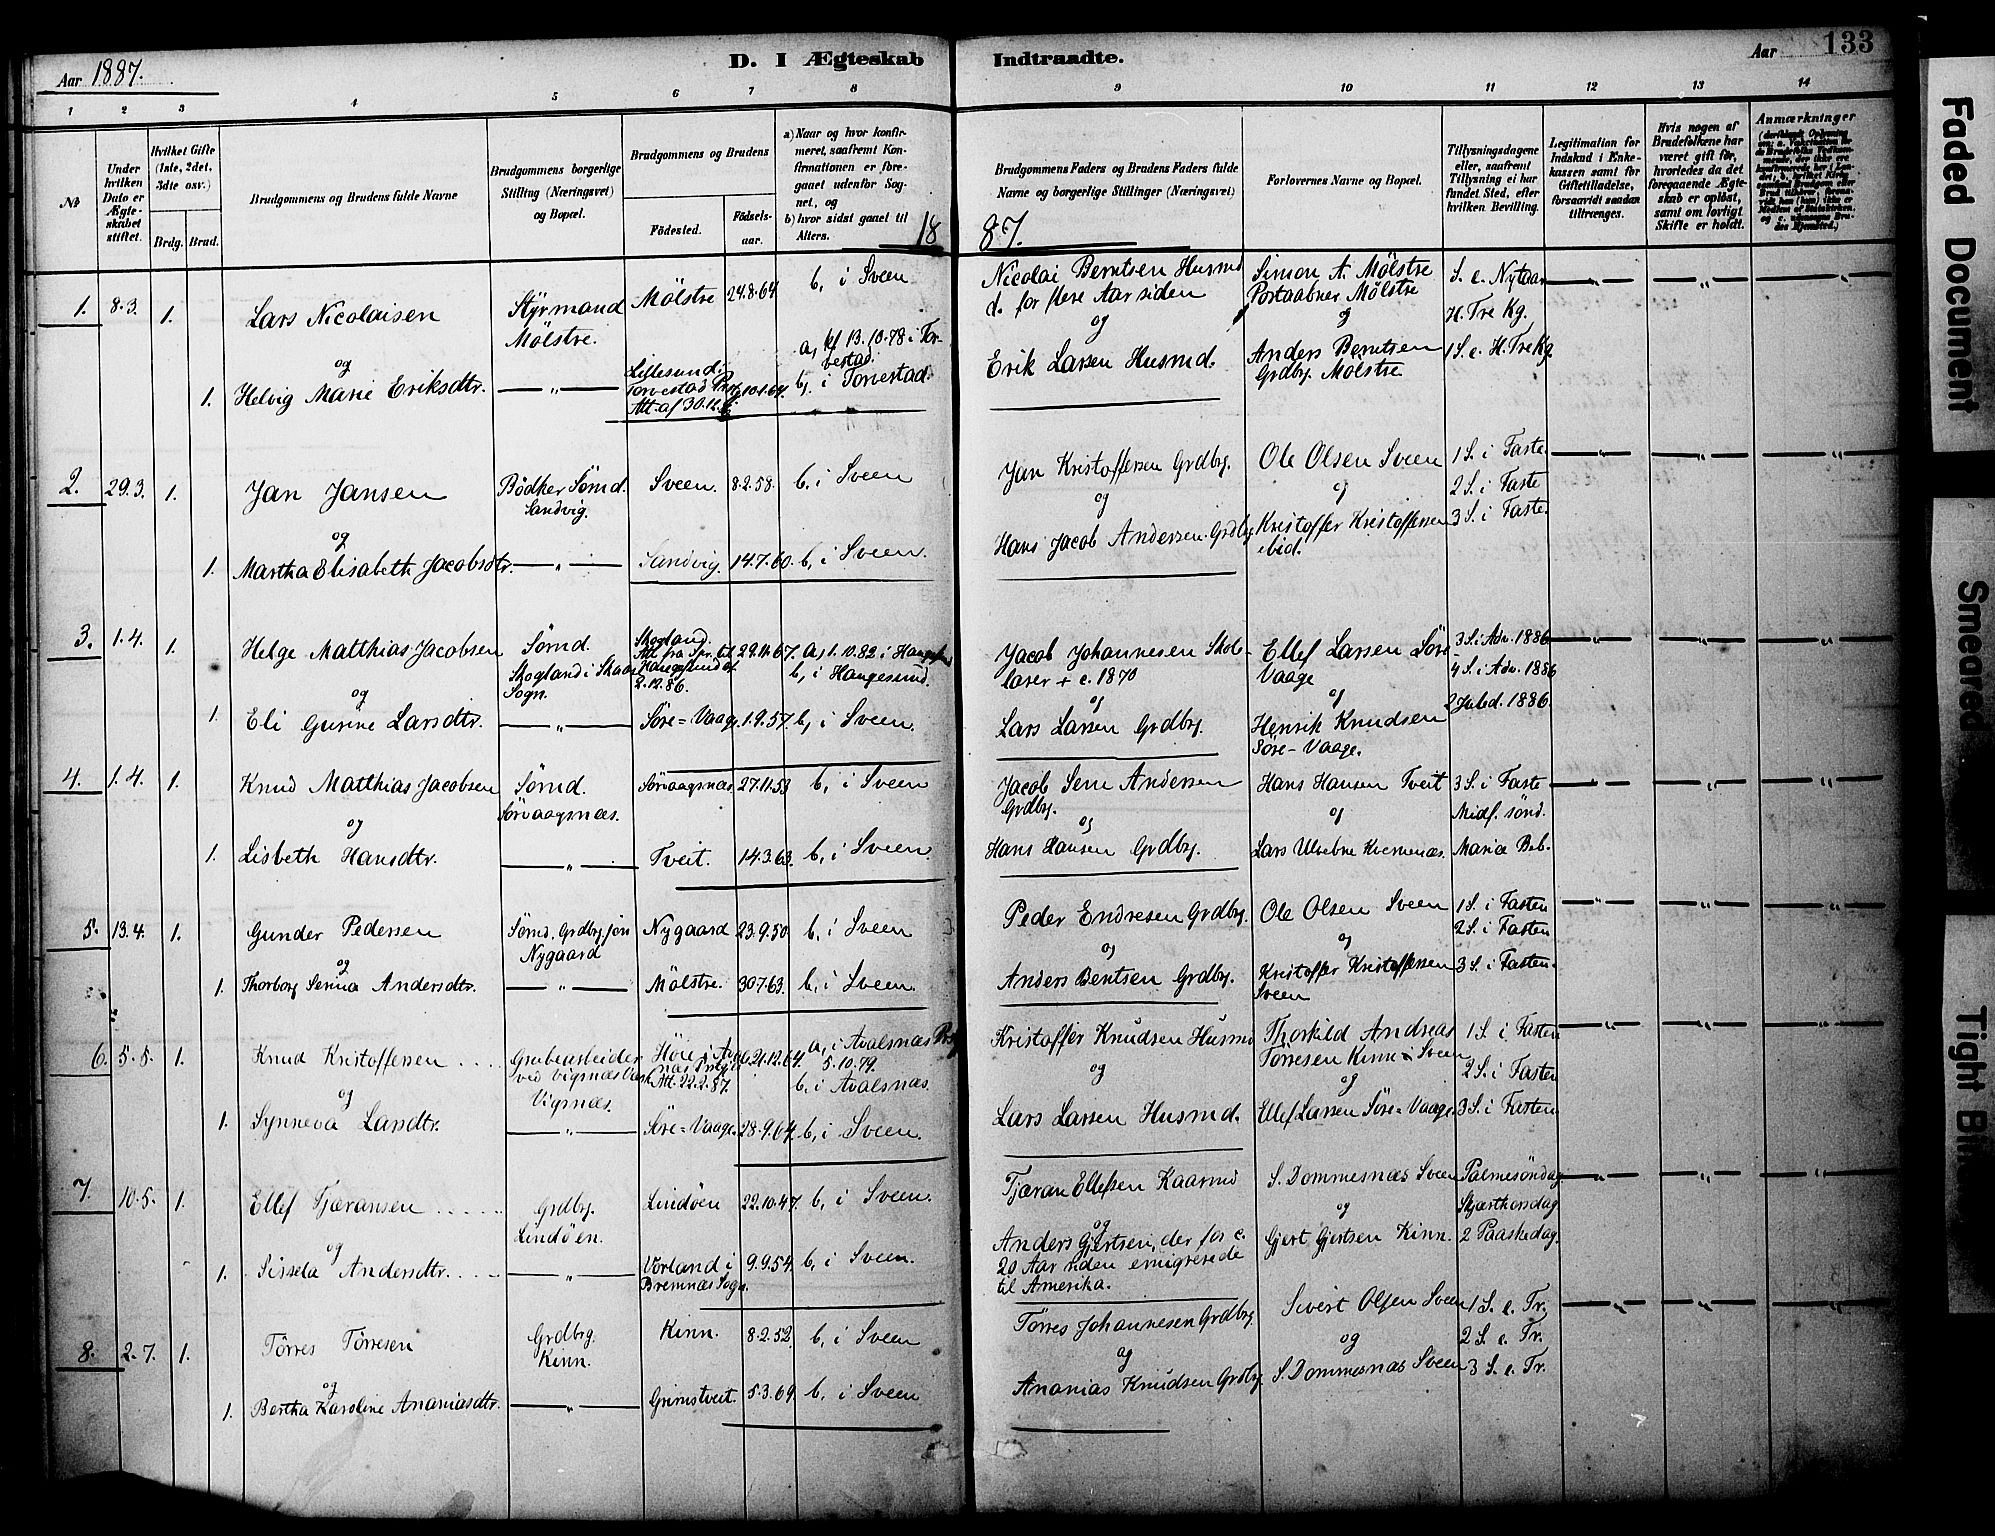 Aar 1887.
D. I Ægteskab Indtraadte.
Aar 133
1 2 3 4 5 6 7 8 9 10 11 12 13 14
№
Under hvilken Dato er Ægteskabet stiftet.
Hvilket Gifte (1ste, 2det, 3dte osv.)
Brdg. Brud.
Brudgommens og Brudens fulde Navne
Brudgommens borgerlige Stilling (Næringsvei) og Bopæl.
Brudgommens og Brudens
Fødested.
Fødselsaar.
a) Naar og hvor konfirmeret, saafremt Konfirmationen er foregaaet udenfor Sognet, og
b) hvor sidst gaaet til Alters.
Brudgommens Faders og Brudens Faders fulde Navne og borgerlige Stillinger (Næringsvei)
Forlovernes Navne og Bopæl.
Tillysningsdagene eller, saafremt Tillysning ei har fundet Sted, efter hvilken Bevilling.
Legitimation for Indskud i Enkekassen samt for Giftetilladelse, forsaavidt saadan tiltrænges.
Hvis nogen af Brudefolkene har været gift før, hvorledes da det foregaaende Ægteskab er opløst, samt om lovligt Skifte er holdt.
Anmærkninger
1887.
1. 8.3. 1. Lars Nicolaisen Styrmand Mølstre. Mølstre 24.8.64 b, i Sveen
Nicolai Berntsen Husmd d. for flere Aar siden
Simon A. Mølstre Postaabner Mølstre
S. e. Nytaar
H. Tre Kg.
og
1. Helvig Marie Eriksdtr. —„— Lillesund i Torvestad Prg. Att. af 30.12. 10.1.64. a, kf 13.10.78 i Torvestad. b, i Torvestad.
Erik Larsen Husmd.
og
Anders Berntsen Grdbr. Mølstre
1 S. e. H. Tre Kg.
2. 29.3. 1. Jan Jansen Bødker Sømd. Sandvig. Sveen. 8.2.58. b, i Sveen
Jan Kristoffersen Grdbrg.
Ole Olsen Sveen
1 S. i Faste.
2 S. i Faste
og
1. Martha Elisabeth Jacobsdtr. —„— Sandvig. 14.7.60. b, i Sveen.
Hans Jacob Andersen Grdbrg
og
Kristoffer Kristoffersen ibid.
3 S. i Faste.
3. 1.4. 1. Helge Matthias Jacobsen Sømd. Skogland i Skaare Sogn. Skogland. Att. fra Spr. til Haugesund af 2.12.86. 29.11.67. a, 1.10.82 i Haugesund b, i Haugesund.
Jacob Johannesen Skolelærer + c. 1870
Ellef Larsen Søre-Vaage
3 S. i Adv. 1886
4 S. i Adv. 1886
2 Juled. 1886.
og
1. Eli Gurine Larsdtr. —„— Søre=Vaage. 1.9.57. b, i Sveen.
Lars Larsen Grdbrg.
og
Henrik Knudsen Søre-Vaage.
4. 1.4. 1. Knud Matthias Jacobsen Sømd. Sørvaagsnæs. Sørvaagsnæs 27.11.53 b, i Sveen
Jacob Sem Andersen Grdbrg.
Hans Hansen Tveit
3 S. i Faste
Midf. sønd.
og
1. Lisbeth Hansdtr. —„— Tveit. 14.3.63. b, i Sveen.
Hans Hansen Grdbrg.
Lars
Mariæ Beb.
5. 13.4. 1. Gunder Pedersen Sømd. Grdbrgsøn Nygaard Nygaard 23.9.50 b, i Sveen
Peder Endresen Grdbrg.
Ole Olsen Sveen
1 S. i Fasten
2 S. i Fasten
og
1. Thorborg Serina Andersdtr. —„— Mølstre. 30.7.63. b, i Sveen.
Anders Bentsen Grdbrg.
og
Kristoffer Kristoffersen Sveen
3 S. i Fasten.
6. 5.5. 1. Knud Kristoffersen Grubearbeider ved Vigsnæs Værk Vigsnæs. Att. 22.2.87. 21.12.64 a, i Avalsnæs 5.10.79. b, i Avalsnæs.
Kristoffer Knudsen Husmd
Thorkild Andreas Tørresen Kinn Sveen
1 S. i Fasten
2 S. i Fasten
og
1. Synneva Larsdtr. —„— Søre=Vaage. 28.9.64. b, i Sveen.
Lars Larsen Husmd.
og
Ellef Larsen Søre=Vaage
3 S. i Fasten
7. 10.5. 1. Ellef Tjæransen Grdbrg. Lindøen. Lindøen 22.10.47. b, i Sveen.
Tjæran Ellefsen Kaarmd
S. Dommesnæs Sveen
Palmesøndag
Skjærthorsdag
og
1. Sissela Andersdtr. —„— Vorland i Bremnæs Sogn. 9.9.54. b, i Sveen.
Anders Gjertsen, der for c. 20 Aar siden emigrerede til Amerika.
og
Gjert Gjertsen Kinn.
2 Paaskedag.
8. 2.7. 1. Tørres Tørresen Grdbrg. Kinn. Kinn. 8.2.52. b, i Sveen
Tørres Johannesen Grdbrg.
Sivert Olsen Sveen
1 S. e. Tr.
2 S. e. Tr.
og
1. Bertha Karoline Ananiasdtr. —„— Grimstveit. 5.3.69. b, i Sveen
Ananias Knudsen Grdbrg.
og
S. Dommesnæs Sveen
3 S. e. Tr.
Faded Document
Smeared